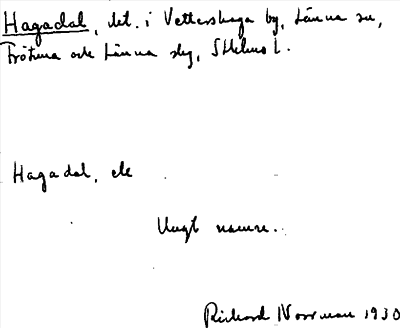 Hagadal, det. i Vettershaga by, Länna sn,
Frötuna och Länna skg, Sthlms l.
Hagadal, ele
Ungt namn.
Rickard Norrman 1930